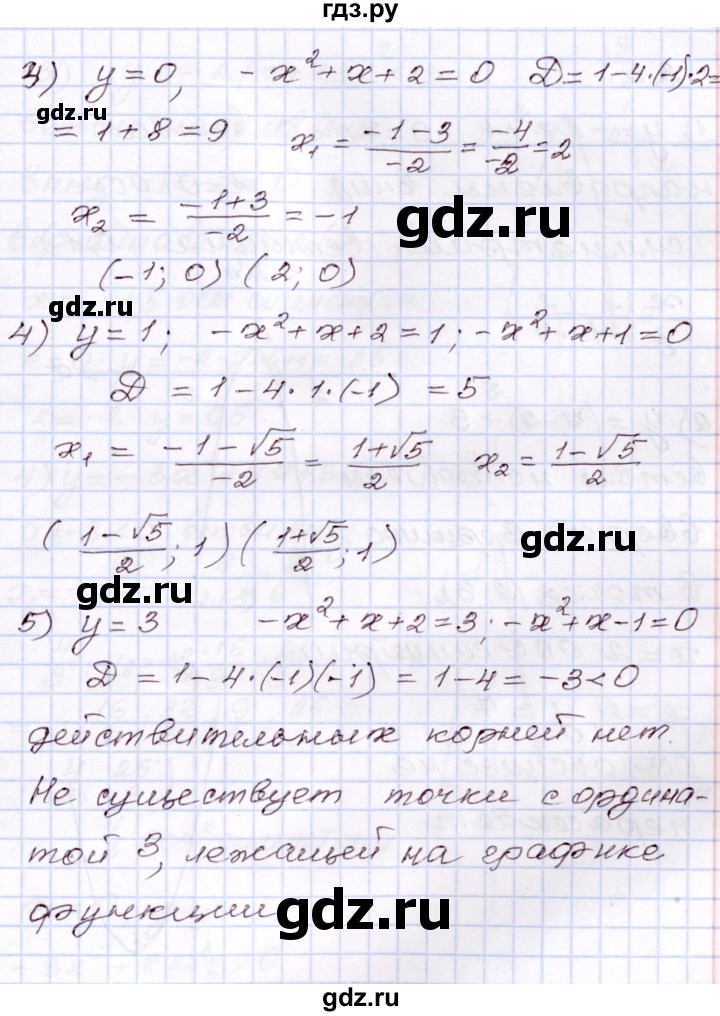 гдз.ру
3) y = 0, - x² + x + 2 = 0 D = 1 - 4·(-1)·2 =
gdz.ru
= 1 + 8 = 9 x₁ = (-1-3)/(-2) = (-4)/(-2) = 2
x₂ = (-1+3)/(-2) = -1
gdz.ru
(-1; 0) (2; 0)
gdz.ru
4) y = 1; - x² + x + 2 = 1; - x² + x + 1 = 0
D = 1 - 4·1·(-1) = 5
x₁ = (-1-√5)/(-2) = (1+√5)/2 x₂ = (1-√5)/2
((1-√5)/2; 1) ((1+√5)/2; 1)
gdz.ru
gdz.ru
5) y = 3 - x² + x + 2 = 3; - x² + x - 1 = 0
D = 1 - 4·(-1)(-1) = 1 - 4 = -3 < 0
действительных корней нет.
Не существует точки с ордина-
той 3, лежащей на графике
функции
gdz.ru
gdz.ru